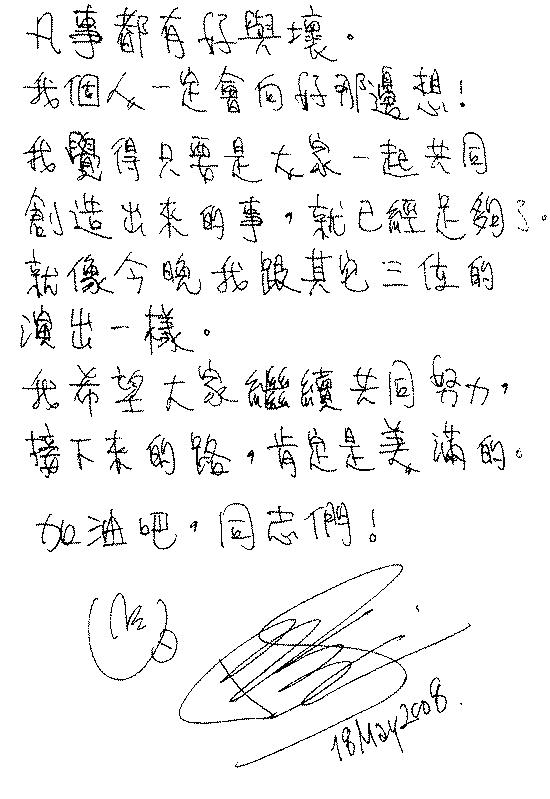 凡事都有好與壞。
我個人一定會向好那邊想!
我覺得只要是大家一起共同
創造出來的事,就已經足夠了。
就像今晚我跟其它三位的
演出一樣。
我希望大家繼續共同努力,
接下來的路,肯定是美滿的。
加油吧,同志們!
18 May 2008.